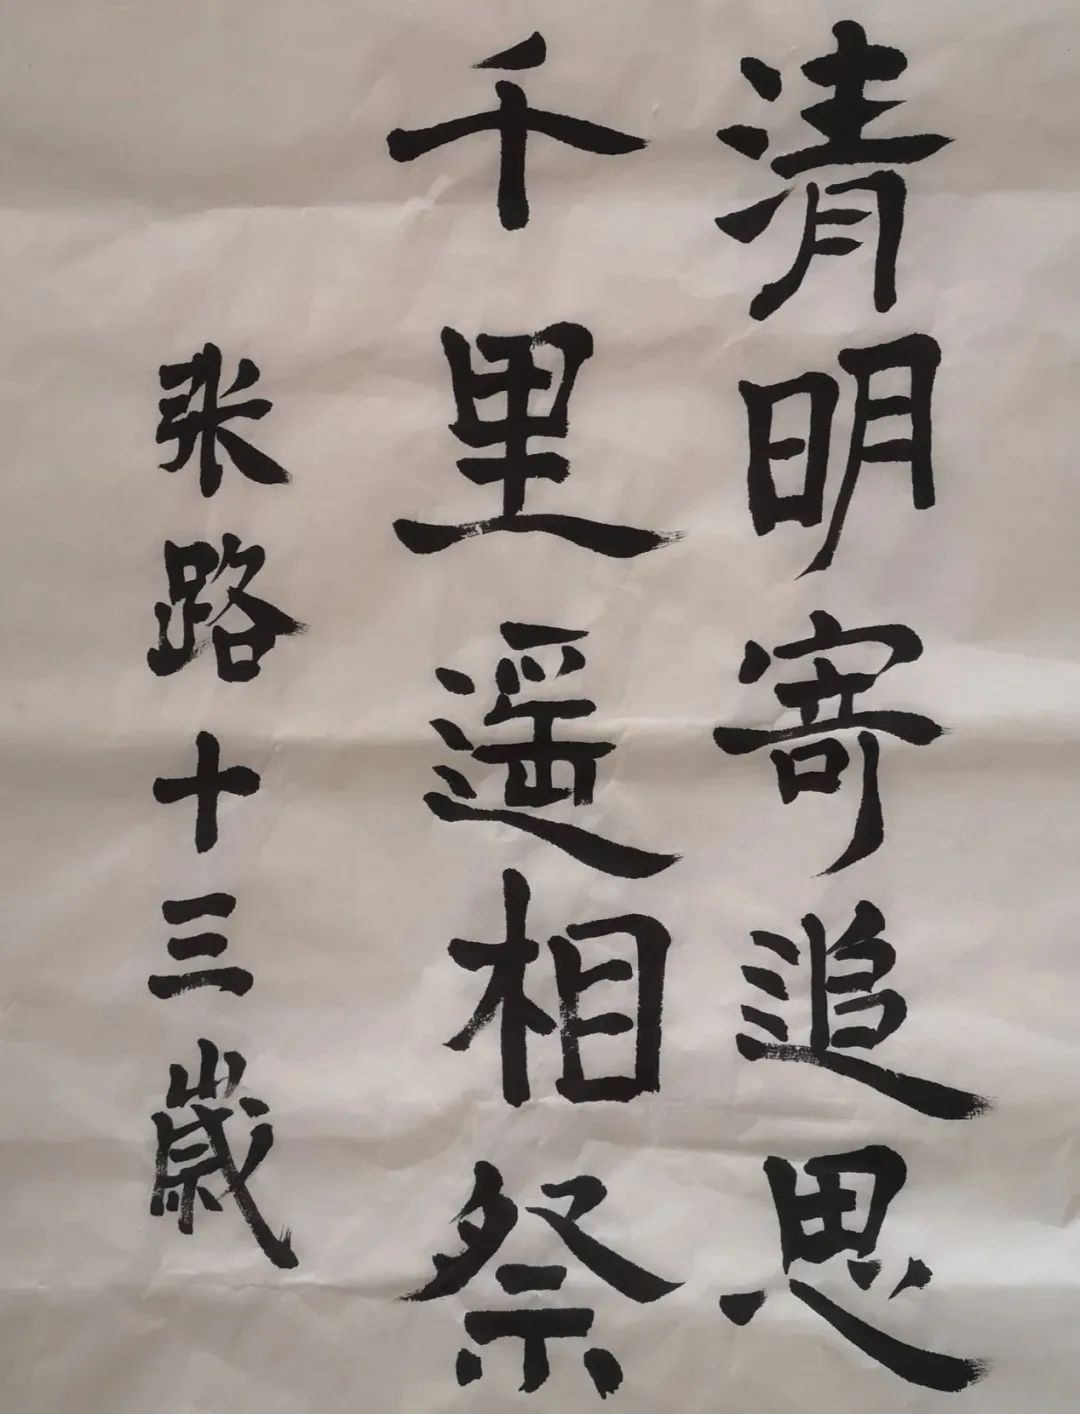 清明寄追思
千里遥相祭
张路十三歳